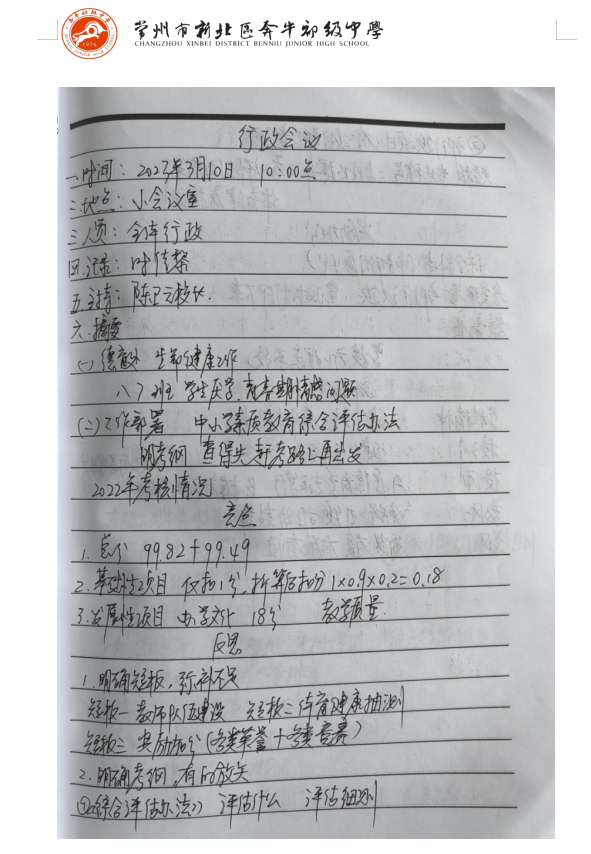 常州市新北区奔牛初级中学
CHANGZHOU XINBEI DISTRICT BENNIU JUNIOR HIGH SCHOOL
行政会议
一.时间：2023年3月10日 10:00点
二.地点：小会议室
三.人员：全体行政
四.记录：叶佳
五.主持：陈卫云校长.
六.摘要
(一) 德育处 生命健康工作
八7班 学生厌学,青春期情绪问题
(二)工作部署 中小学素质教育综合评估办法
明考纲 查得失 新考路上再出发
2022年考核情况
亮点
1.总分 99.82+99.49
2.基础性项目 仅扣1分,折算后扣分1×0.9×0.2=0.18
3.发展性项目 办学文化 18分 教学质量.
反思
1.明确短板,弥补不足
短板一教师队伍建设 短板二体育健康抽测
短板三 奖励加分(各类荣誉+各类竞赛)
2.明确考纲,有的放矢
①《综合评估办法》 评估什么 评估细则